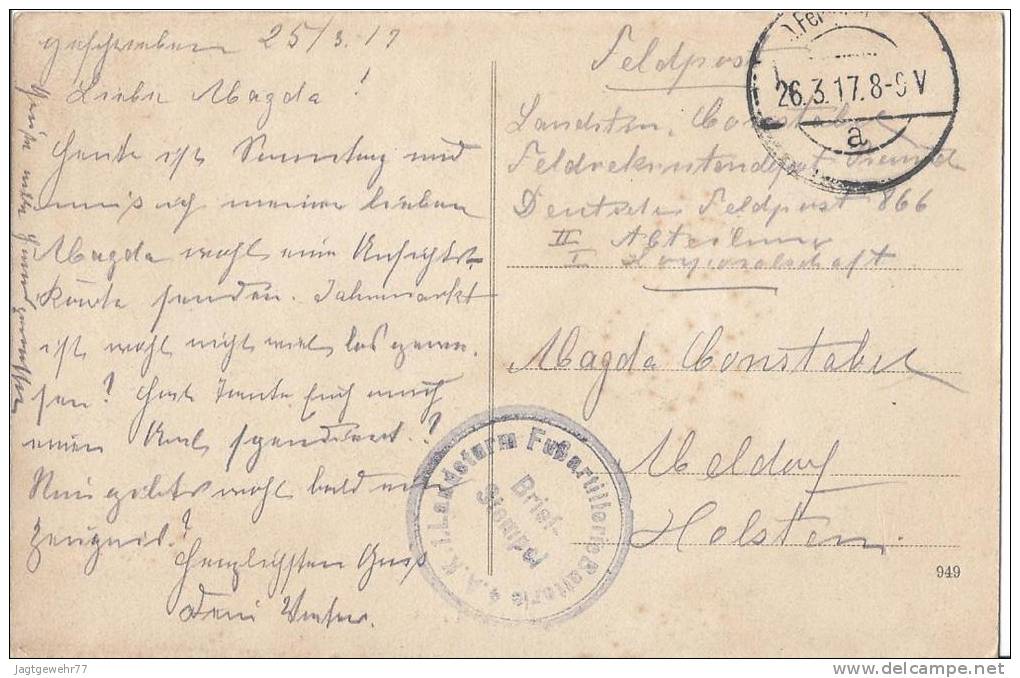 geschrieben 25/3.17
Liebe Magda!
Heute ist Sonntag und
muß ich meiner lieben
Magda wohl eine Ansichts-
karte senden. Jahrmarkt
ist wohl nicht viel los gewe-
sen? Hat Tante Euch auch
einen spendiert.?
Nun gibts wohl bald
Zeugnis.?
Herzlichsten Gruß
Dein Vater.
Feldpost
Landstm. Constabel
Feldrekrutendepot
Deutsche Feldpost 866
II Abteilung
I Korporalschaft
26.3.17.8-9V
a
Magda Constabel
Meldorf
Holstein.
Landsturm Fußartillerie Batterie
Brief-
Stempel
949
Jagtgewehr77
delcampe.net